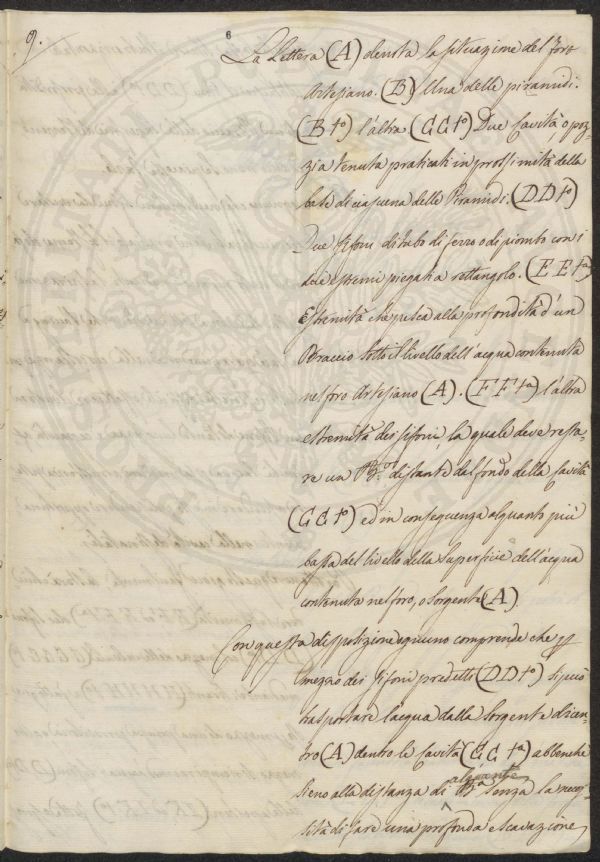 9.
6
La Lettera (A) denota la situazione del foro
Artesiano. (B) Una delle piramidi.
(B tº) l'altra (CC tº) Due Cavità o poz-
zi a tenuta praticati in prossimità della
base di ciascuna delle Piramidi. (DD tº)
Due sifoni di tubo di ferro o di piombo con i
due estremi piegati a rettangolo. (EE tª)
Estremità che pesca alla profondità d'un
Braccio sotto il livello dell'acqua contenuta
nel foro Artesiano (A). (FF tª) l'altra
estremità dei sifoni, la quale deve resta-
re un Bº distante dal fondo della Cavità
(CC tº) ed in conseguenza alquanto più
bassa del livello della superficie dell'acqua
contenuta nel foro, o sorgente (A)
Con questa disposizione ognuno comprende che
mezzo dei sifoni predetti (DD tº) si può
trasportare l'acqua dalla sorgente di cen-
tro (A) dentro le Cavità (CC tª) abbenche
sieno alla distanza di alquante Bª senza la neces-
sità di fare una profonda escavazione,